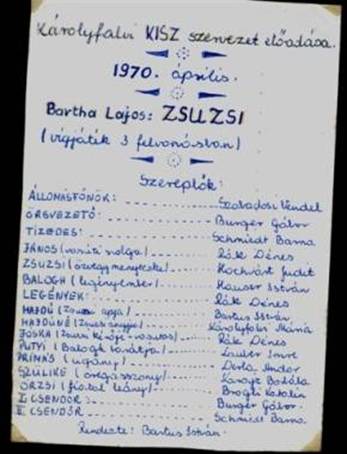 Károlyfalvi KISZ szervezet előadása.
1970. április.
Bartha Lajos: ZSUZSI
(vígjáték 3 felvonásban)
Szereplők:
ÁLLOMÁSFŐNÖK: Szabadosi Vendel
ŐRVEZETŐ: Burger Gábor
TIZEDES: Schmidt Barna
JÁNOS (vasúti szolga) Rák Dénes
ZSUZSI (özvegy menyecske) Hochvárt Judit
BALOGH (legényember) Hauser István
LEGÉNYEK: Rák Dénes
HAJDÚ (Zsuzsi apja) Bartus István
HAJDÚNÉ (Zsuzsi anyja) Károlyfalvi Mária
JÓSKA (Zsuzsi kérője-vasutas) Rák Dénes
PUTYI (Balogh barátja) Lauter Imre
PRÍMÁS (cigány) Andor
SZÜLIKE (öregasszony) Borbála
ÖRZSI (fiatal leány) Brogli Katalin
I. CSENDŐR: Burger Gábor
II. CSENDŐR Schmidt Barna
Rendezte: Bartus István.